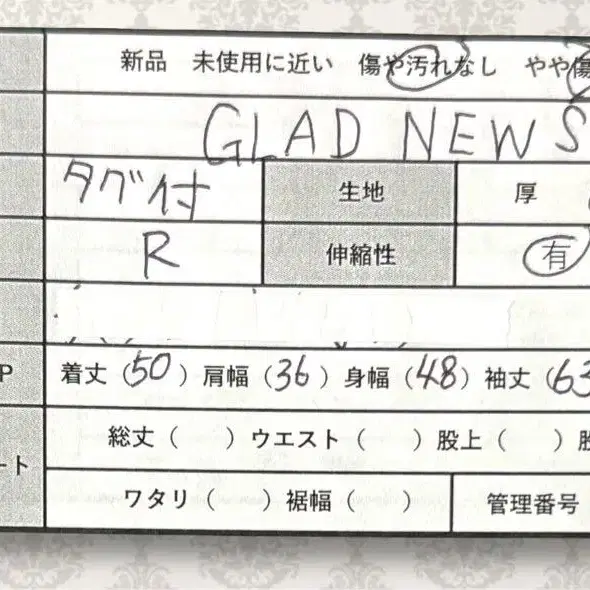 新品 未使用に近い 傷や汚れなし やや傷
GLAD NEWS
タグ付 生地 厚
R 伸縮性 有
P 着丈(50) 肩幅(36) 身幅(48) 袖丈(63
総丈( ) ウエスト( ) 股上( ) 股
ート
ワタリ( ) 裾幅( ) 管理番号